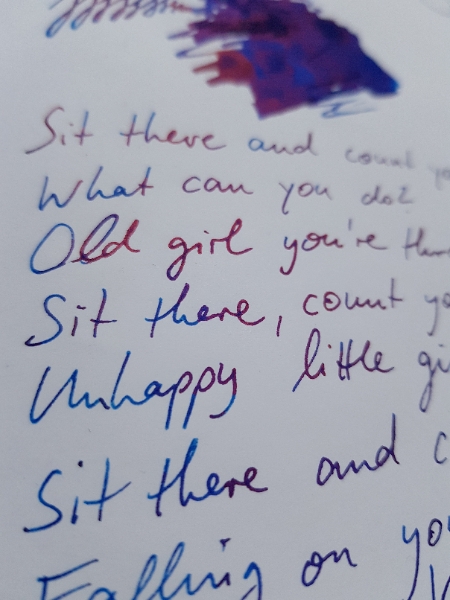 Sit there and count
What can you do?
Old girl you're
Sit there, count
Unhappy little
Sit there and
Falling on